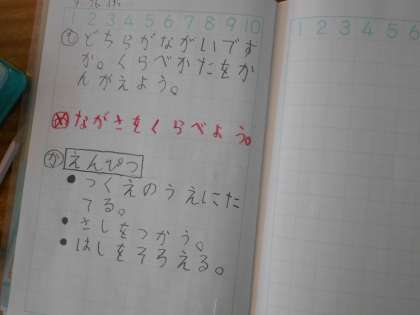 1 2 3 4 5 6 7 8 9 10
1 2 3 4 5 6
どちらがながいです
か。くらべかたをか
んがえよう。
め ながさをくらべよう。
か えんぴつ
● つくえのうえにた
てる。
● さしをつかう。
● はしをそろえる。